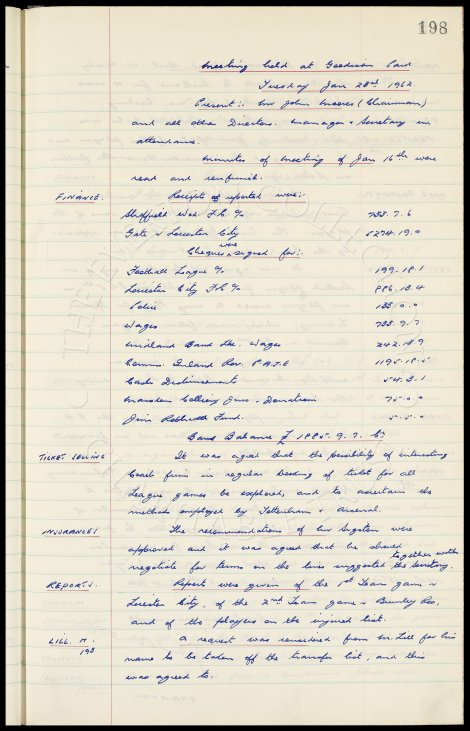 198
Meeting held at Goodison Park
Tuesday Jan 23rd 1962
Present:- Mr John Moores (Chairman)
and all other Directors. Manager & Secretary in
attendance.
Minutes of Meeting of Jan 16th were
read and confirmed.
FINANCE. Receipts reported were:-
Sheffield Wed F.C. %
Gate v Leicester City 5274.19.0
Cheques were signed for:-
Football League % 199.18.1
Leicester City F.C. % 886.13.4
Police 135.0.0
Wages 733.9.7
Midland Bank Ltd. Wages 242.18.9
Comms. Inland Rev. P.A.Y.E 1195.18.5
Cash Disbursements 54.3.1
Colliery Juns. Donation 75.0.0
Jim Fund. 5.5.0
Bank Balance £ 1885.9.7. Cr
TICKET SELLING It was agreed that the possibility of interesting
Coach firms in regular booking of tickets for all
League games be explored, and to ascertain the
methods employed by Tottenham & Arsenal.
INSURANCES The recommendations of Mr were
approved and it was agreed that he should
negotiate for terms on the lines suggested together with the Secretary.
REPORTS. Reports were given of the 1st Team game v
Leicester City, of the 2nd Team game v Burnley Res,
and of the players on the injured list.
LILL. M. A request was received from Mr. Lill for his
195 name to be taken off the transfer list, and this
was agreed to.